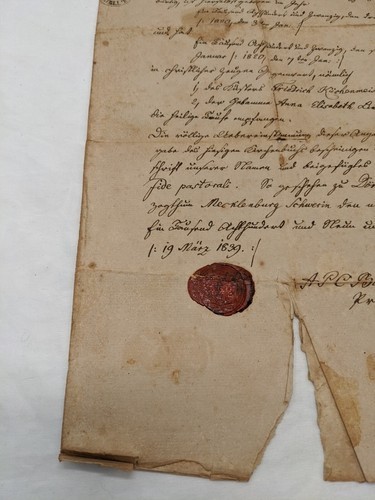 Ein Tausend Achthundert und Zwanzig, den
|: 1820, den 3ten Jan. :|
und hat
Ein Tausend Achthundert und Zwanzig, den
Januar |: 1820, den 7ten Jan. :|
in christlicher Zeugen Gegenwart, nämlich
1, des Küsters Friedrich
2, der Hebamme Anna Elisabeth
die heilige Taufe empfangen.
Die völlige Uebereinstimmung dieser
gabe des hiesigen Kirchenbuchs bescheinigen
schrift unserer Namen und beigefügtes
fide pastorali. So geschehen zu
zogthum Mecklenburg Schwerin den
Ein Tausend Achthundert und Neun
|: 19 März 1839. :|